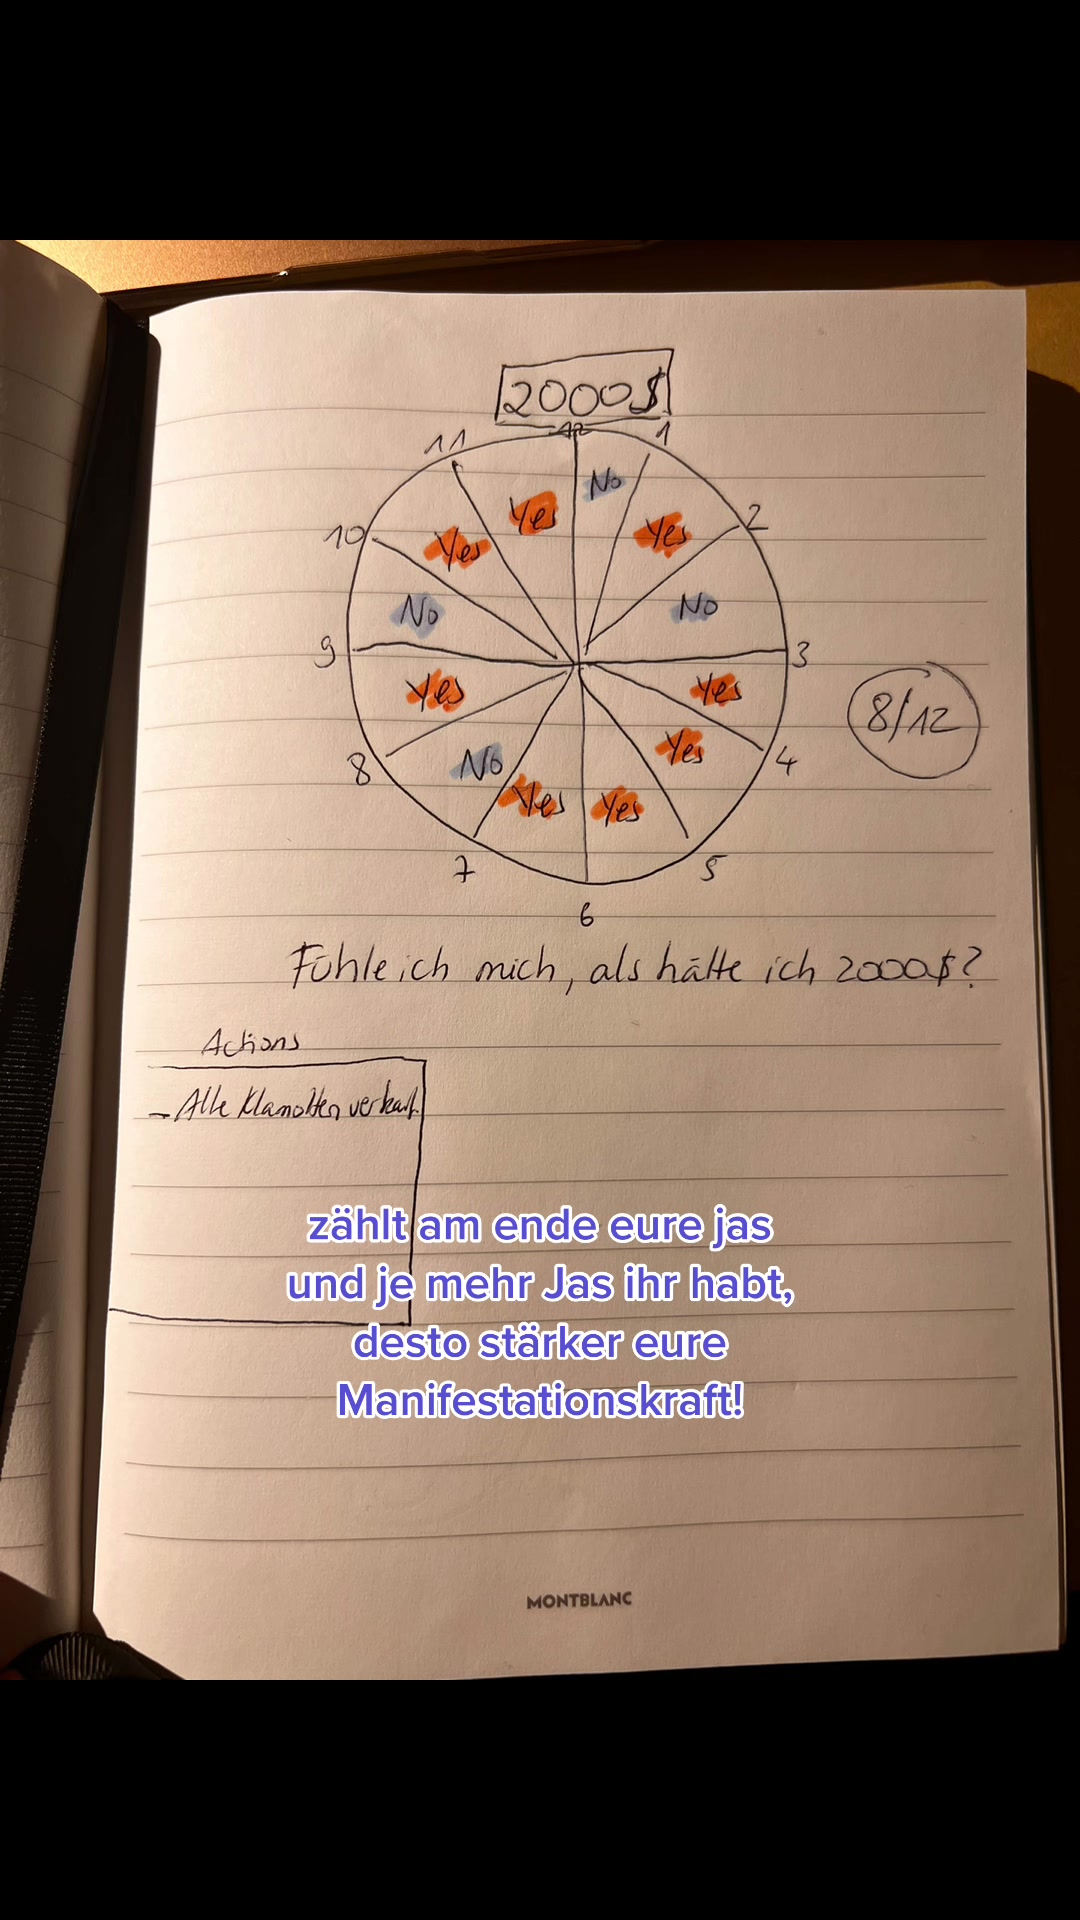 2000$
12
1
11
No
Yes
2
Yes
10
Yes
No
No
9
3
Yes
Yes
8/12
Yes
4
8
No
Yes
Yes
7
5
6
Fühle ich mich, als hätte ich 2000$?
Actions
- Alle Klamotten verkauf.
zählt am ende eure jas
und je mehr Jas ihr habt,
desto stärker eure
Manifestationskraft!
MONTBLANC